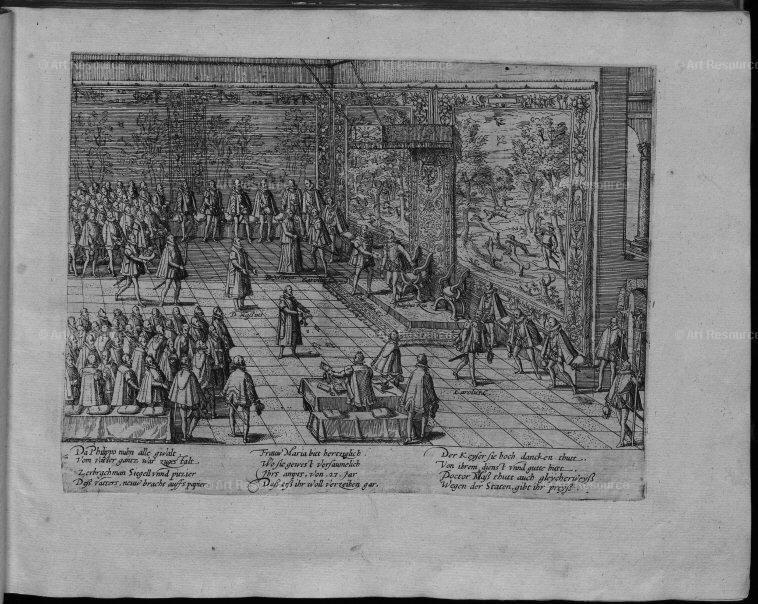 © Art Resource © Art Resource © Art Resource
© Art Resource © Art Resource © Art Resource
© Art Resource © Art Resource © Art Resource
Carolus.
Da Philippo nuhn alle gwalt
Vom vatter gantz war zugestalt
Zerbrach man Siegell vnnd pitzier
Deß vatters, neuw bracht auffs papier
Frauw Maria bat hertziglich
Wo sie gewest versaumelich
Ihrs ampts, von 22. Jar
Das eß ihr woll verzeihen gar.
Der Keyser sie hoch dancken thutt.
Von ihrem dienst vnnd gutte hutt.
Doctor Maß thutt auch gleycherweyß
Wegen der Staten, gibt ihr preyß.